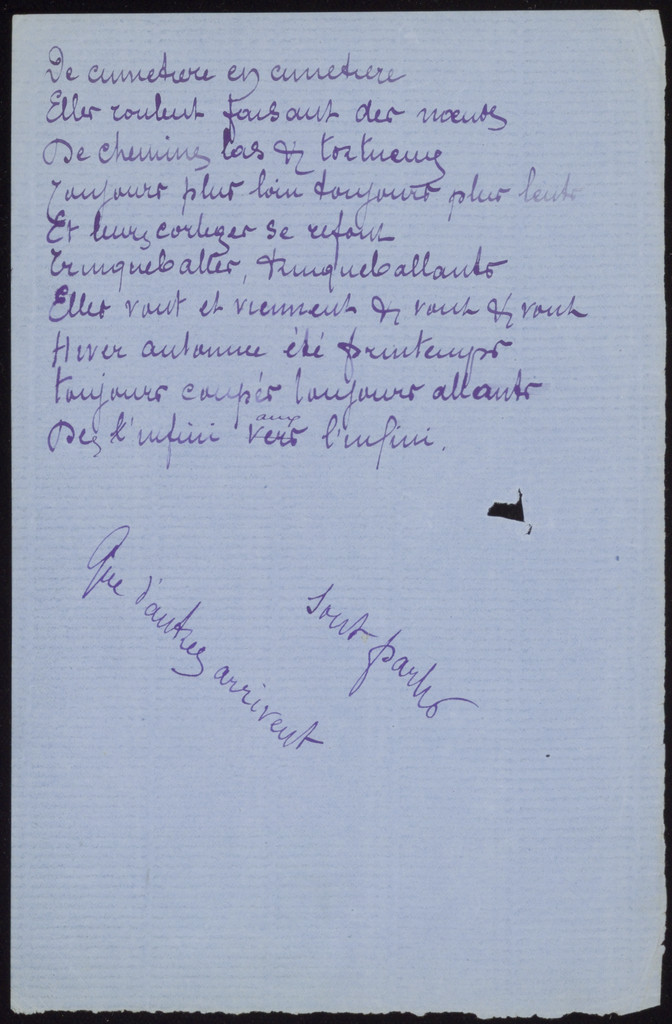 De cimetiere en cimetiere
Elles roulent faisant des nœuds
De chemins las & tortueux
Toujours plus loin toujours plus lents
Et leurs corteges se refont
Trinqueballes, trinqueballants
Elles vont et viennent & vont & vont
Hiver automne été printemps
toujours coupés toujours allants
Des l'infini aux vers l'infini.
Que d'autres arrivent
sont partis